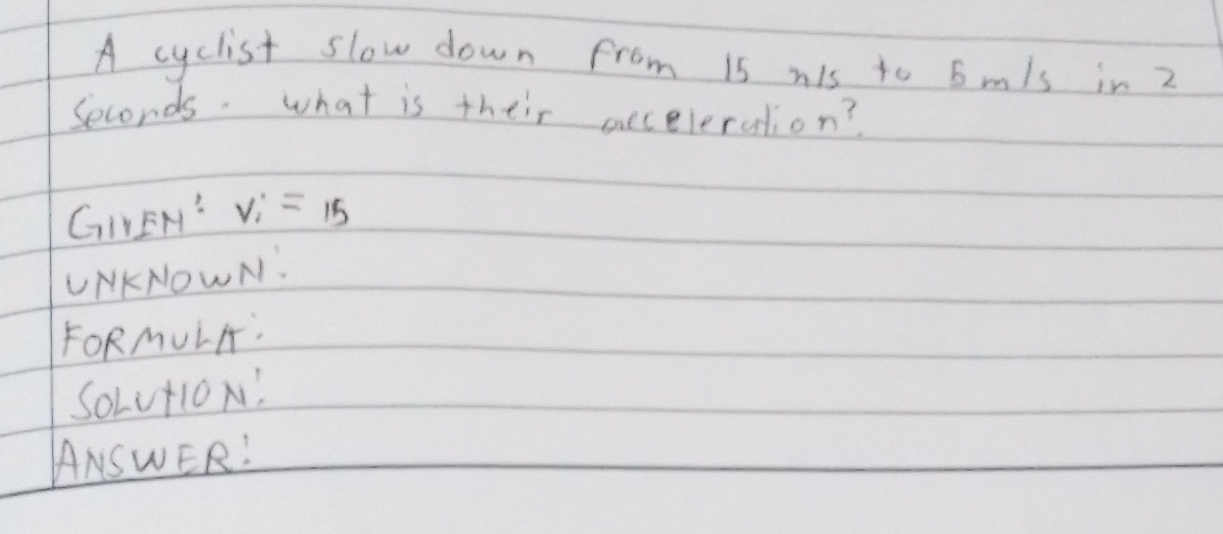 A cyclist slow down from 15 m/s to 5 m/s in 2
seconds. what is their acceleration?
GIVEN: Vi = 15
UNKNOWN:
FORMULA:
SOLUTION:
ANSWER: